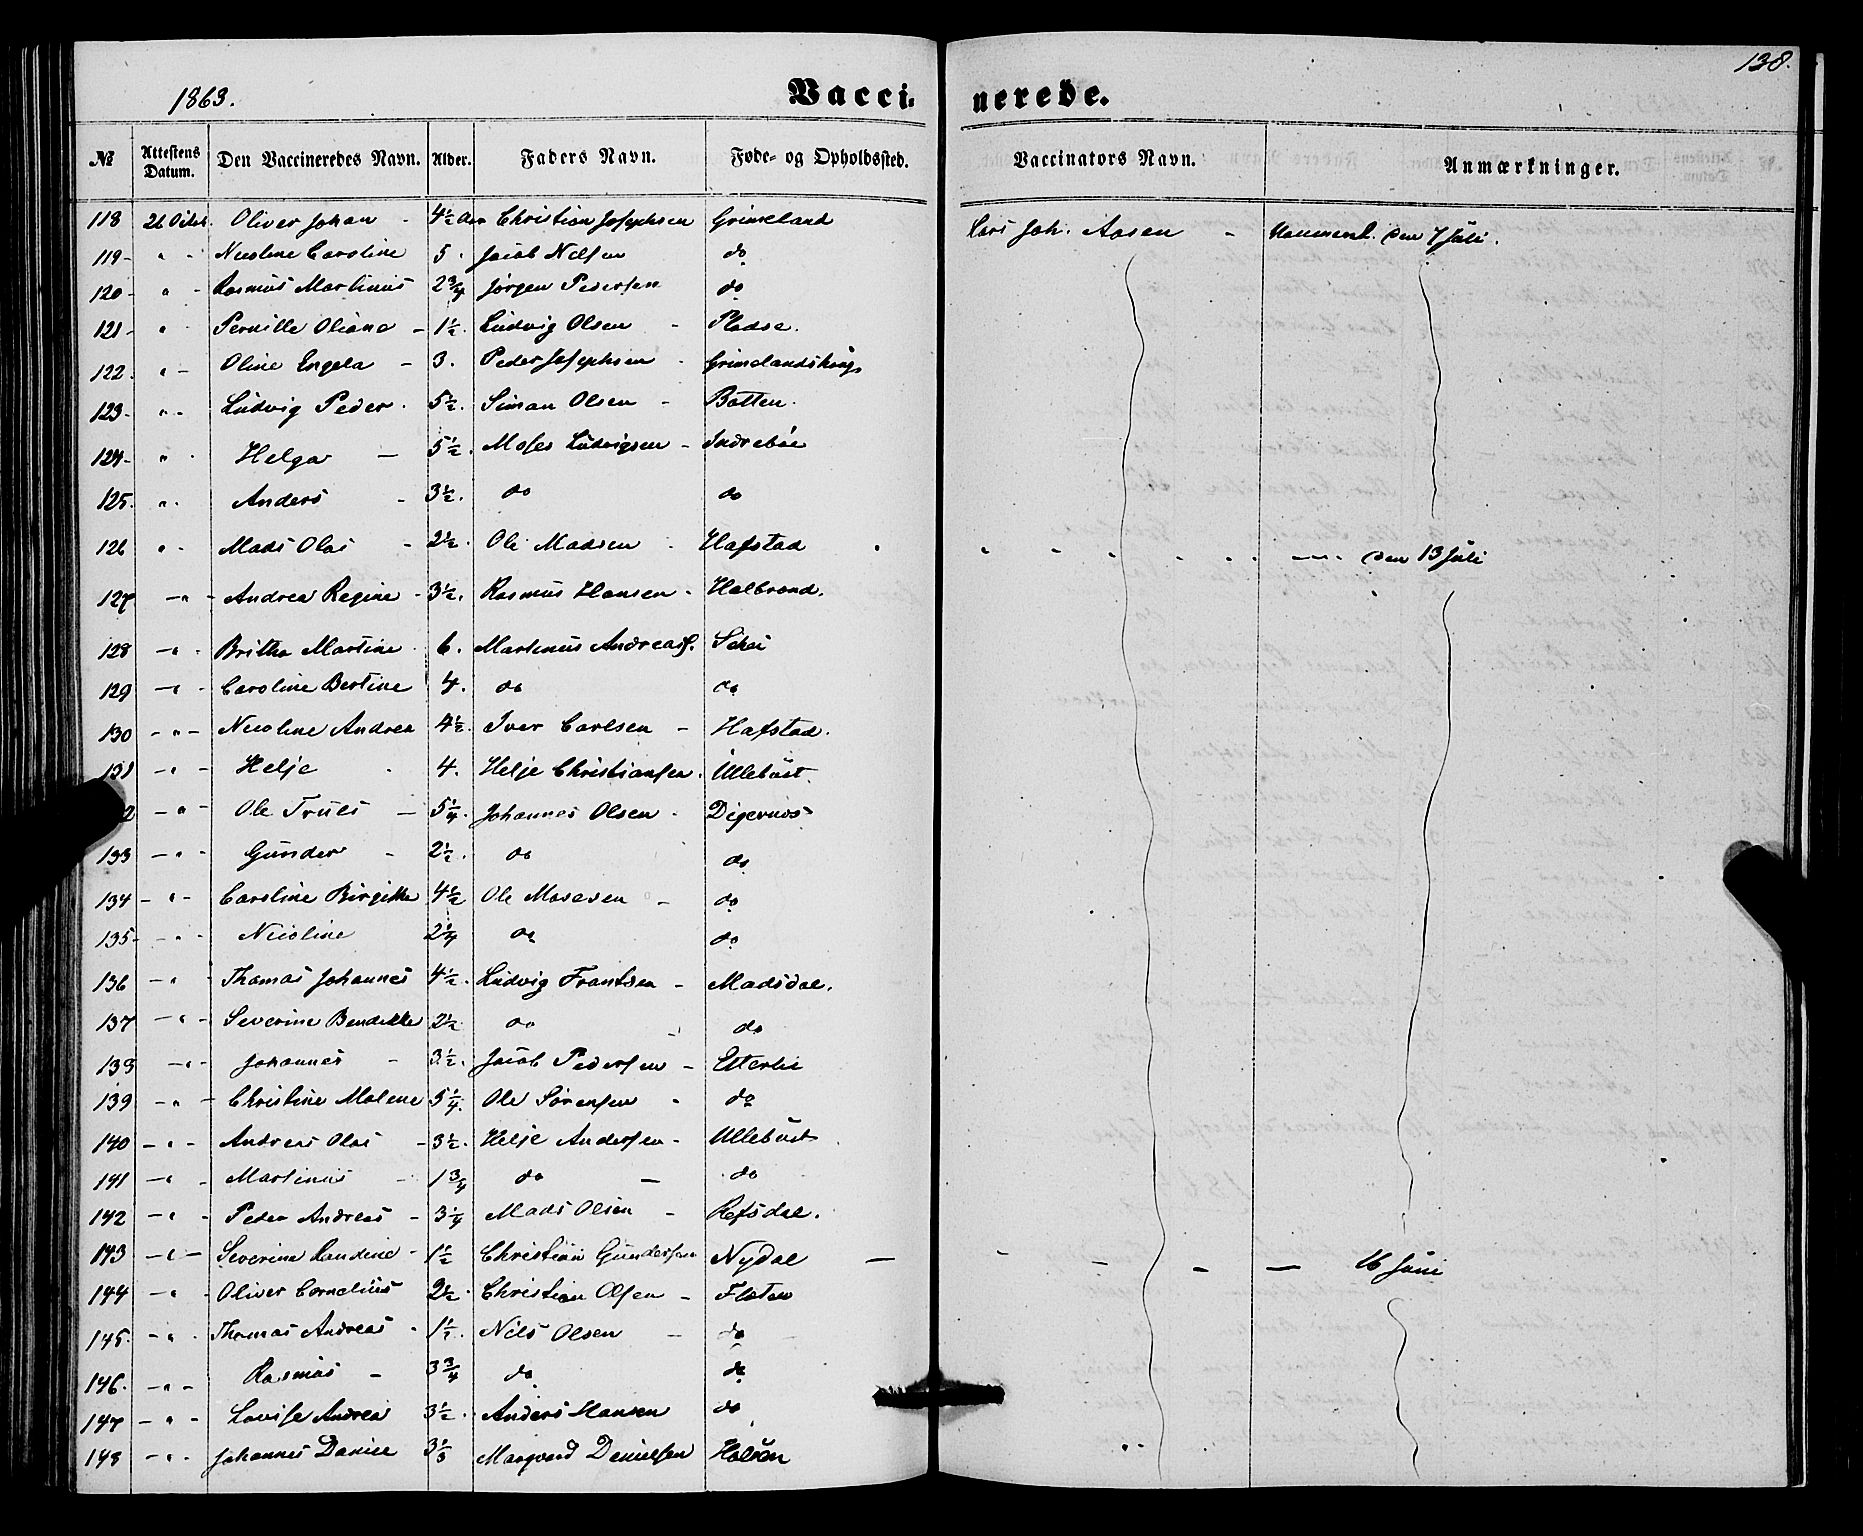 138.
1863. Vacci- nerede.
№ Attestens Datum. Den Vaccineredes Navn. Alder. Faders Navn. Føde- og Opholdssted. Vaccinators Navn. Anmærkninger.
118 26 Octbr. Oliver Johan - 4½ Aar Christian Josephsen Grimeland Lars Joh. Aasen - den 7 Juli.
119 - " - Nicoline Caroline 5 . Jacob Nilsen do
120 - " - Rasmus Martinus 2¾ Jørgen Pedersen do
121 - " Pernille Oliane - 1½. Ludvig Olsen - Pladse.
122. " - Oline Engela - 3. Peder Josephsen - 
123 - " - Ludvig Peder . 5½. Simon Olsen - Botten.
124 - " . Helga - 5½. Moses Ludvigsen - Indrebøe
125. " . Anders - 3½. do do
126 " - Mads Olai - 2½. Ole Madsen - Hafstad den 13 Juli
127 - " - Andrea Regine - 3½. Rasmus Hansen - Halbrand.
128 - " - Britha Martine . 6. Martinus Andreass. Schei
129 - " - Caroline Bertine 4. do do
130 - " - Nicoline Andrea 4½. Iver Carlsen - Hafstad.
131 - " - Helje . 4. Helje Christiansen . Ullebust.
2 - " - Ole Trues - 5¼. Johannes Olsen - Digernæs
133 - " - Gunder - 2½. do do
134 - " - Caroline Birgitte 4½ Ole Mosesen - do
135 - " - Nicoline 2¼ do do
136 - " - Thomas Johannes 4½. Ludvig Frantsen - Madsdal.
137 - " - Severine Bendikte 2½ do do
138 - " - Johannes - 3½. Jacob Pedersen - Etterlie
139 - " - Christine Malene 5¼. Ole Sørensen - do
140 - " - Andreas Olai - 3½. Helje Andersen - Ullebust
141 - " - Martinus - 1¾ do - do
142 - " - Peder Andreas - 3¼ Mads Olsen - Refsdal.
143 - " - Severine Landine - 1½ Christian Gundersen Nydal - 16 Juni
144 - " - Oliver Cornelius 2½. Christian Olsen - Floten
145. - " . Thomas Andreas - 1½. Nils Olsen - do
146. - " - Rasmus - 3¾ do do
147 - " - Lovise Andrea 3½. Anders Hansen do
148 - " - Johannes Daniel 3⅓ Marqvard Danielsen Holsen